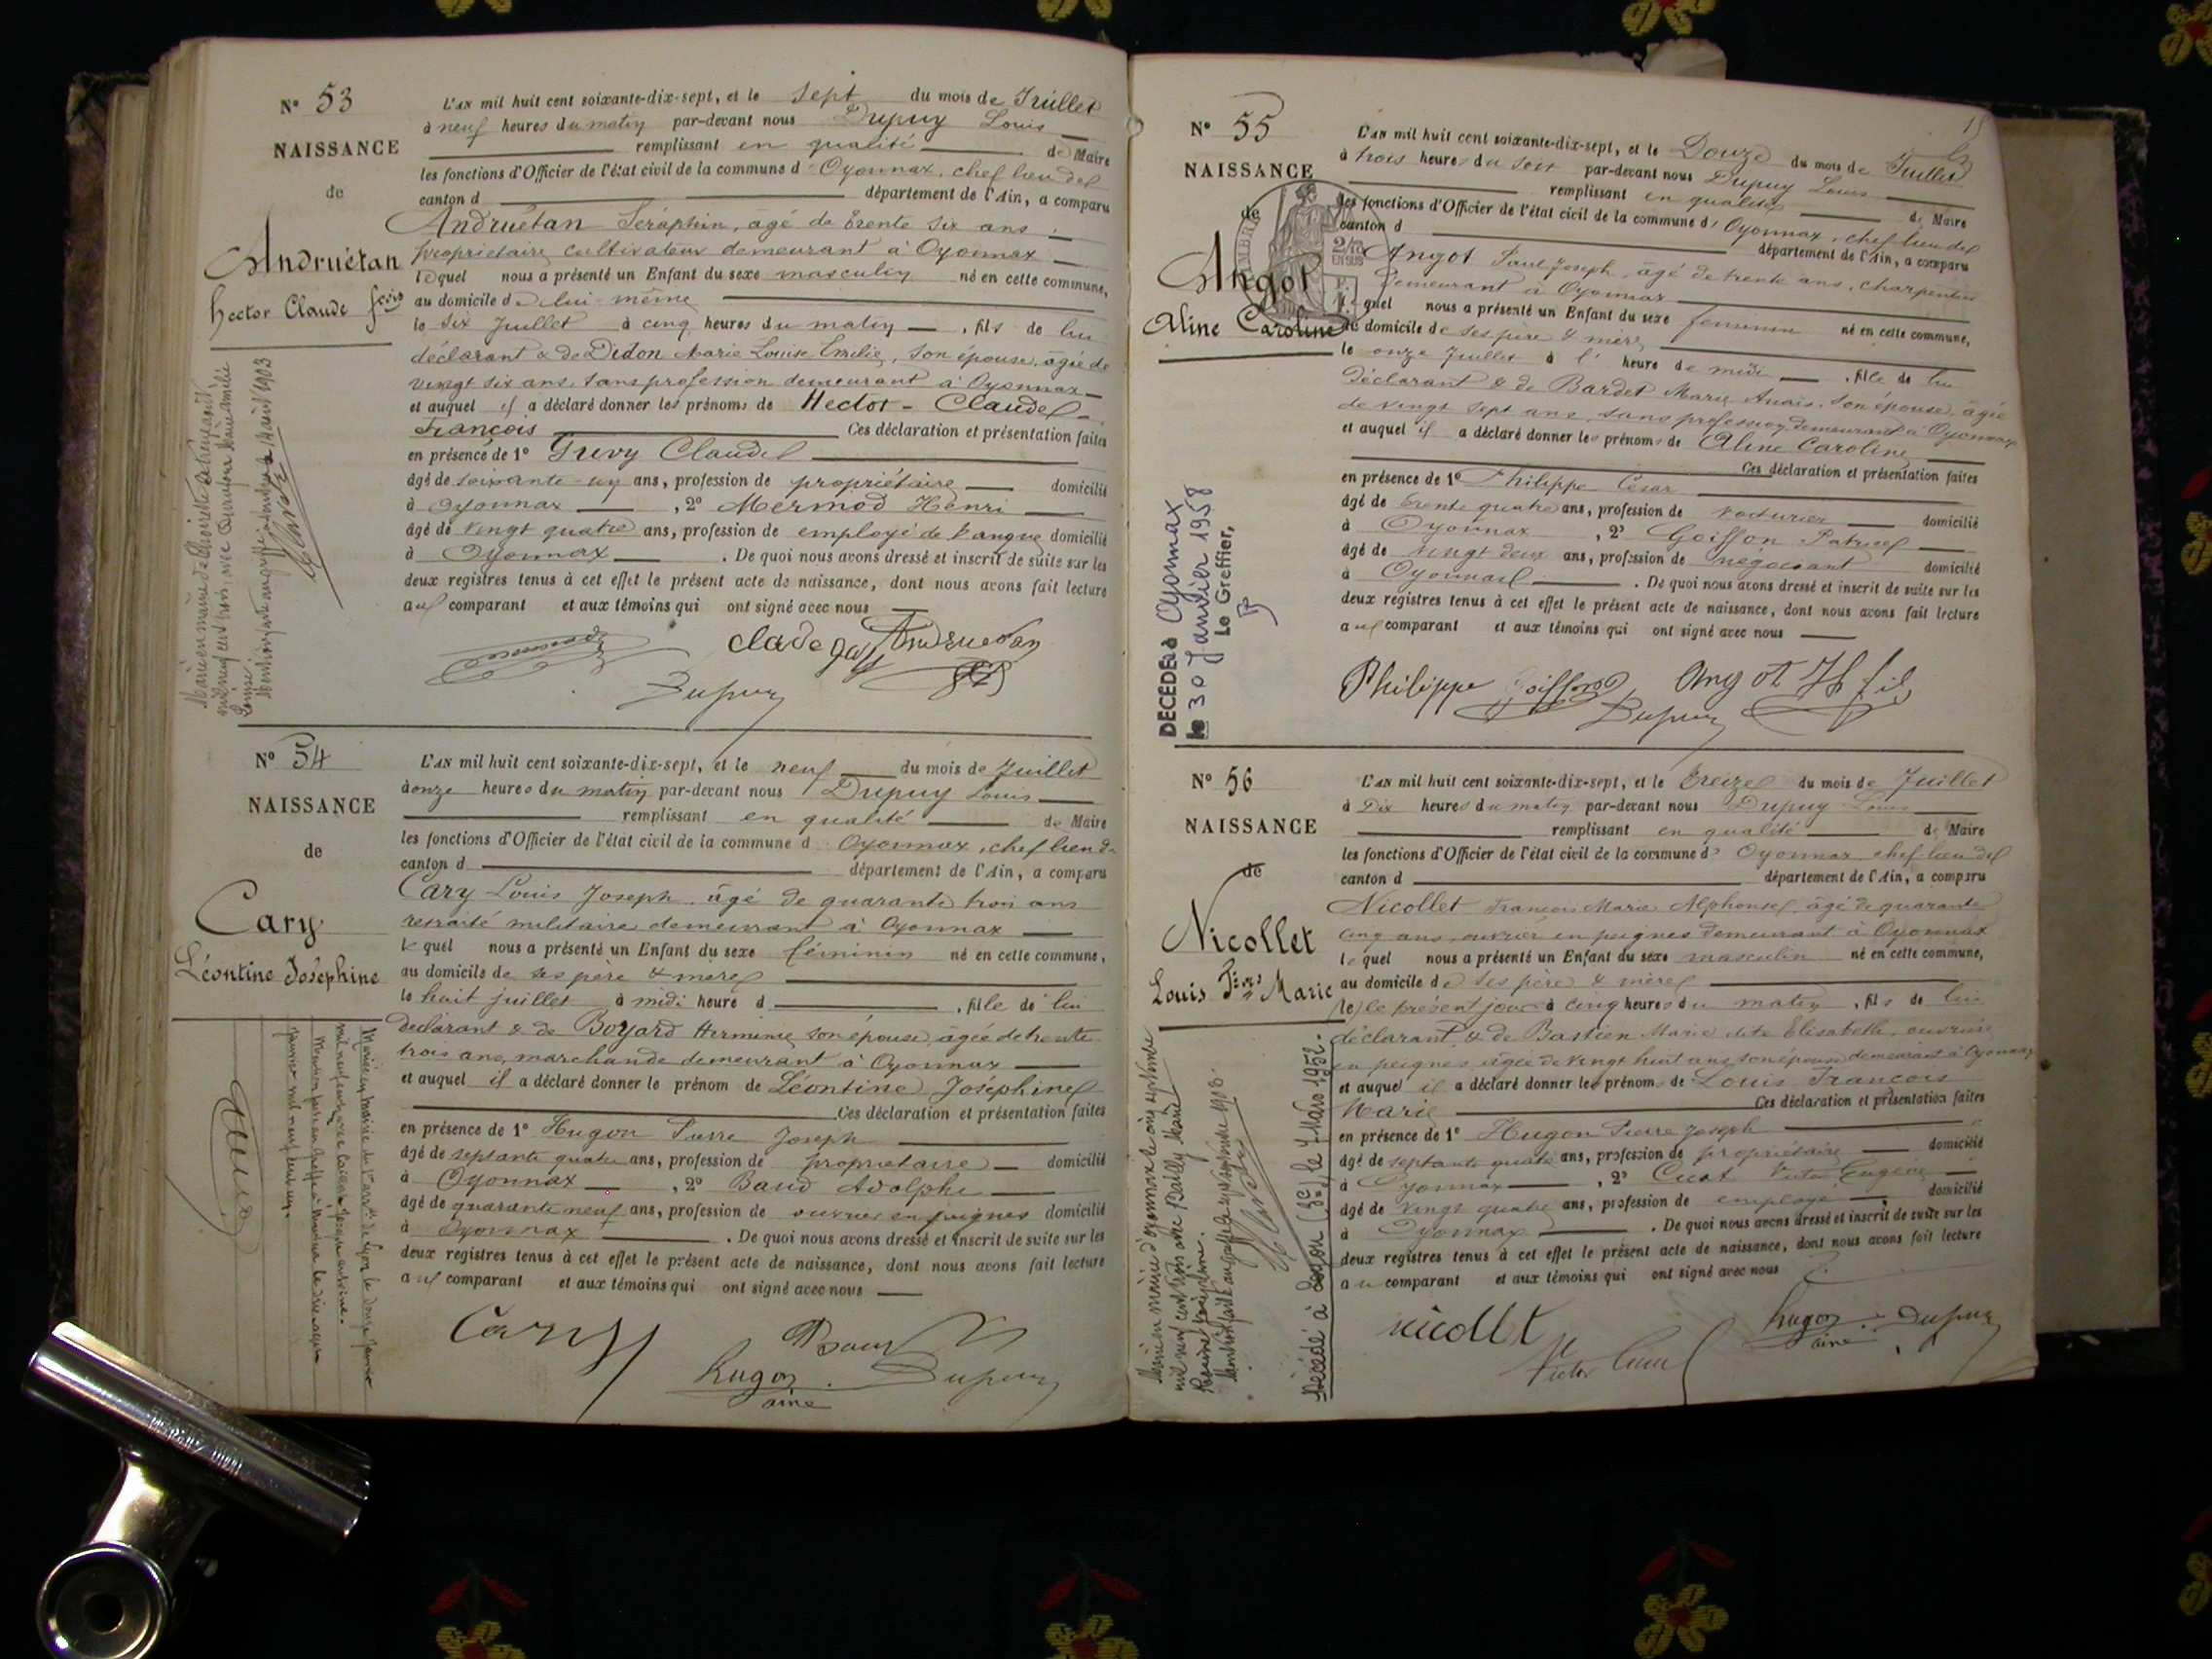 N° 53
NAISSANCE
de
Andruétan
Hector Claude fcois
L'AN mil huit cent soixante-dix-sept, et le sept du mois de Juillet
à neuf heures du matin par-devant nous Dupuy Louis
remplissant en qualité de Maire
les fonctions d'Officier de l'état civil de la commune d'Oyonnax, chef lieu de
canton d département de l'Ain, a comparu
Andruétan Séraphin, âgé de trente six ans
propriétaire cultivateur demeurant à Oyonnax
lequel nous a présenté un Enfant du sexe masculin né en cette commune,
au domicile de lui-même
le six Juillet à cinq heures du matin, fils de lui
déclarant & de Didon Marie Louise Emélie, son épouse, âgée de
vingt six ans, sans profession demeurant à Oyonnax
et auquel il a déclaré donner les prénoms de Hector - Claude
François Ces déclaration et présentation faites
en présence de 1° Grevy Claude
âgé de soixante-un ans, profession de propriétaire domicilié
à Oyonnax, 2° Mermod Henri
âgé de vingt quatre ans, profession de employé de banque domicilié
à Oyonnax. De quoi nous avons dressé et inscrit de suite sur les
deux registres tenus à cet effet le présent acte de naissance, dont nous avons fait lecture
au comparant et aux témoins qui ont signé avec nous
Andruetan
Dupuy
N° 54
NAISSANCE
de
Cary
Léontine Joséphine
L'AN mil huit cent soixante-dix-sept, et le neuf du mois de Juillet
à onze heures du matin par-devant nous Dupuy Louis
remplissant en qualité de Maire
les fonctions d'Officier de l'état civil de la commune d'Oyonnax, chef lieu de
canton d département de l'Ain, a comparu
Cary Louis Joseph âgé de quarante trois ans
retraité militaire demeurant à Oyonnax
lequel nous a présenté un Enfant du sexe féminin né en cette commune,
au domicile de ses père & mère
le huit juillet à midi heure d, fille de lui
déclarant & de Boyard Herminie son épouse, âgée de trente
trois ans, marchande demeurant à Oyonnax
et auquel il a déclaré donner le prénom de Léontine Joséphine
Ces déclaration et présentation faites
en présence de 1° Hugon Pierre Joseph
âgé de septante quatre ans, profession de propriétaire domicilié
à Oyonnax, 2° Baud Adolphe
âgé de quarante neuf ans, profession de ouvrier en peignes domicilié
à Oyonnax. De quoi nous avons dressé et inscrit de suite sur les
deux registres tenus à cet effet le présent acte de naissance, dont nous avons fait lecture
au comparant et aux témoins qui ont signé avec nous
Cary Baud
hugon Dupuy
ainé
N° 55
NAISSANCE
de
Angot
Aline Caroline
2/10 EN SUS
DÉCÉDÉE à Oyonnax
le 30 Janvier 1958
Le Greffier,
L'AN mil huit cent soixante-dix-sept, et le Douze du mois de Juillet
à trois heures du soir par-devant nous Dupuy Louis
remplissant en qualité de Maire
les fonctions d'Officier de l'état civil de la commune d'Oyonnax, chef lieu de
canton d département de l'Ain, a comparu
Angot Paul Joseph, âgé de trente ans, charpentier
demeurant à Oyonnax
lequel nous a présenté un Enfant du sexe féminin né en cette commune,
au domicile de ses père & mère
le onze Juillet à l' heure de midi, fille de lui
déclarant & de Bardet Marie Anaïs, son épouse, âgée
de vingt sept ans, sans profession, demeurant à Oyonnax
et auquel il a déclaré donner les prénoms de Aline Caroline
Ces déclaration et présentation faites
en présence de 1° Philippe César
âgé de trente quatre ans, profession de voiturier domicilié
à Oyonnax, 2° Goiffon Patrice
âgé de vingt deux ans, profession de négociant domicilié
à Oyonnax. De quoi nous avons dressé et inscrit de suite sur les
deux registres tenus à cet effet le présent acte de naissance, dont nous avons fait lecture
au comparant et aux témoins qui ont signé avec nous
Philippe Goiffon Angot fils
Dupuy
N° 56
NAISSANCE
de
Nicollet
Louis Fçois Marie
Décédé à Lyon (3e) le 7 Mars 1952.
L'AN mil huit cent soixante-dix-sept, et le treize du mois de Juillet
à Dix heures du matin par-devant nous Dupuy Louis
remplissant en qualité de Maire
les fonctions d'Officier de l'état civil de la commune d'Oyonnax chef lieu de
canton d département de l'Ain, a comparu
Nicollet François Marie Alphonse, âgé de quarante
cinq ans, ouvrier en peignes demeurant à Oyonnax
lequel nous a présenté un Enfant du sexe masculin né en cette commune,
au domicile de ses père & mère
(le) le présent jour à cinq heures du matin, fils de lui
déclarant & de Bastien Marie dite Elisabeth, ouvrière
en peignes âgée de vingt huit ans, son épouse demeurant à Oyonnax
et auquel il a déclaré donner les prénoms de Louis François
Marie Ces déclaration et présentation faites
en présence de 1° Hugon Pierre Joseph
âgé de septante quatre ans, profession de propriétaire domicilié
à Oyonnax, 2° Cuat Victor Eugène
âgé de vingt quatre ans, profession de employé domicilié
à Oyonnax. De quoi nous avons dressé et inscrit de suite sur les
deux registres tenus à cet effet le présent acte de naissance, dont nous avons fait lecture
au comparant et aux témoins qui ont signé avec nous
nicollet hugon Dupuy
ainé
Victor